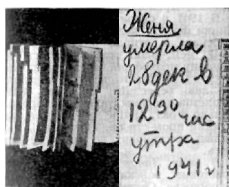 Женя
умерла
28 дек в
12³⁰ час
утра
1941 г